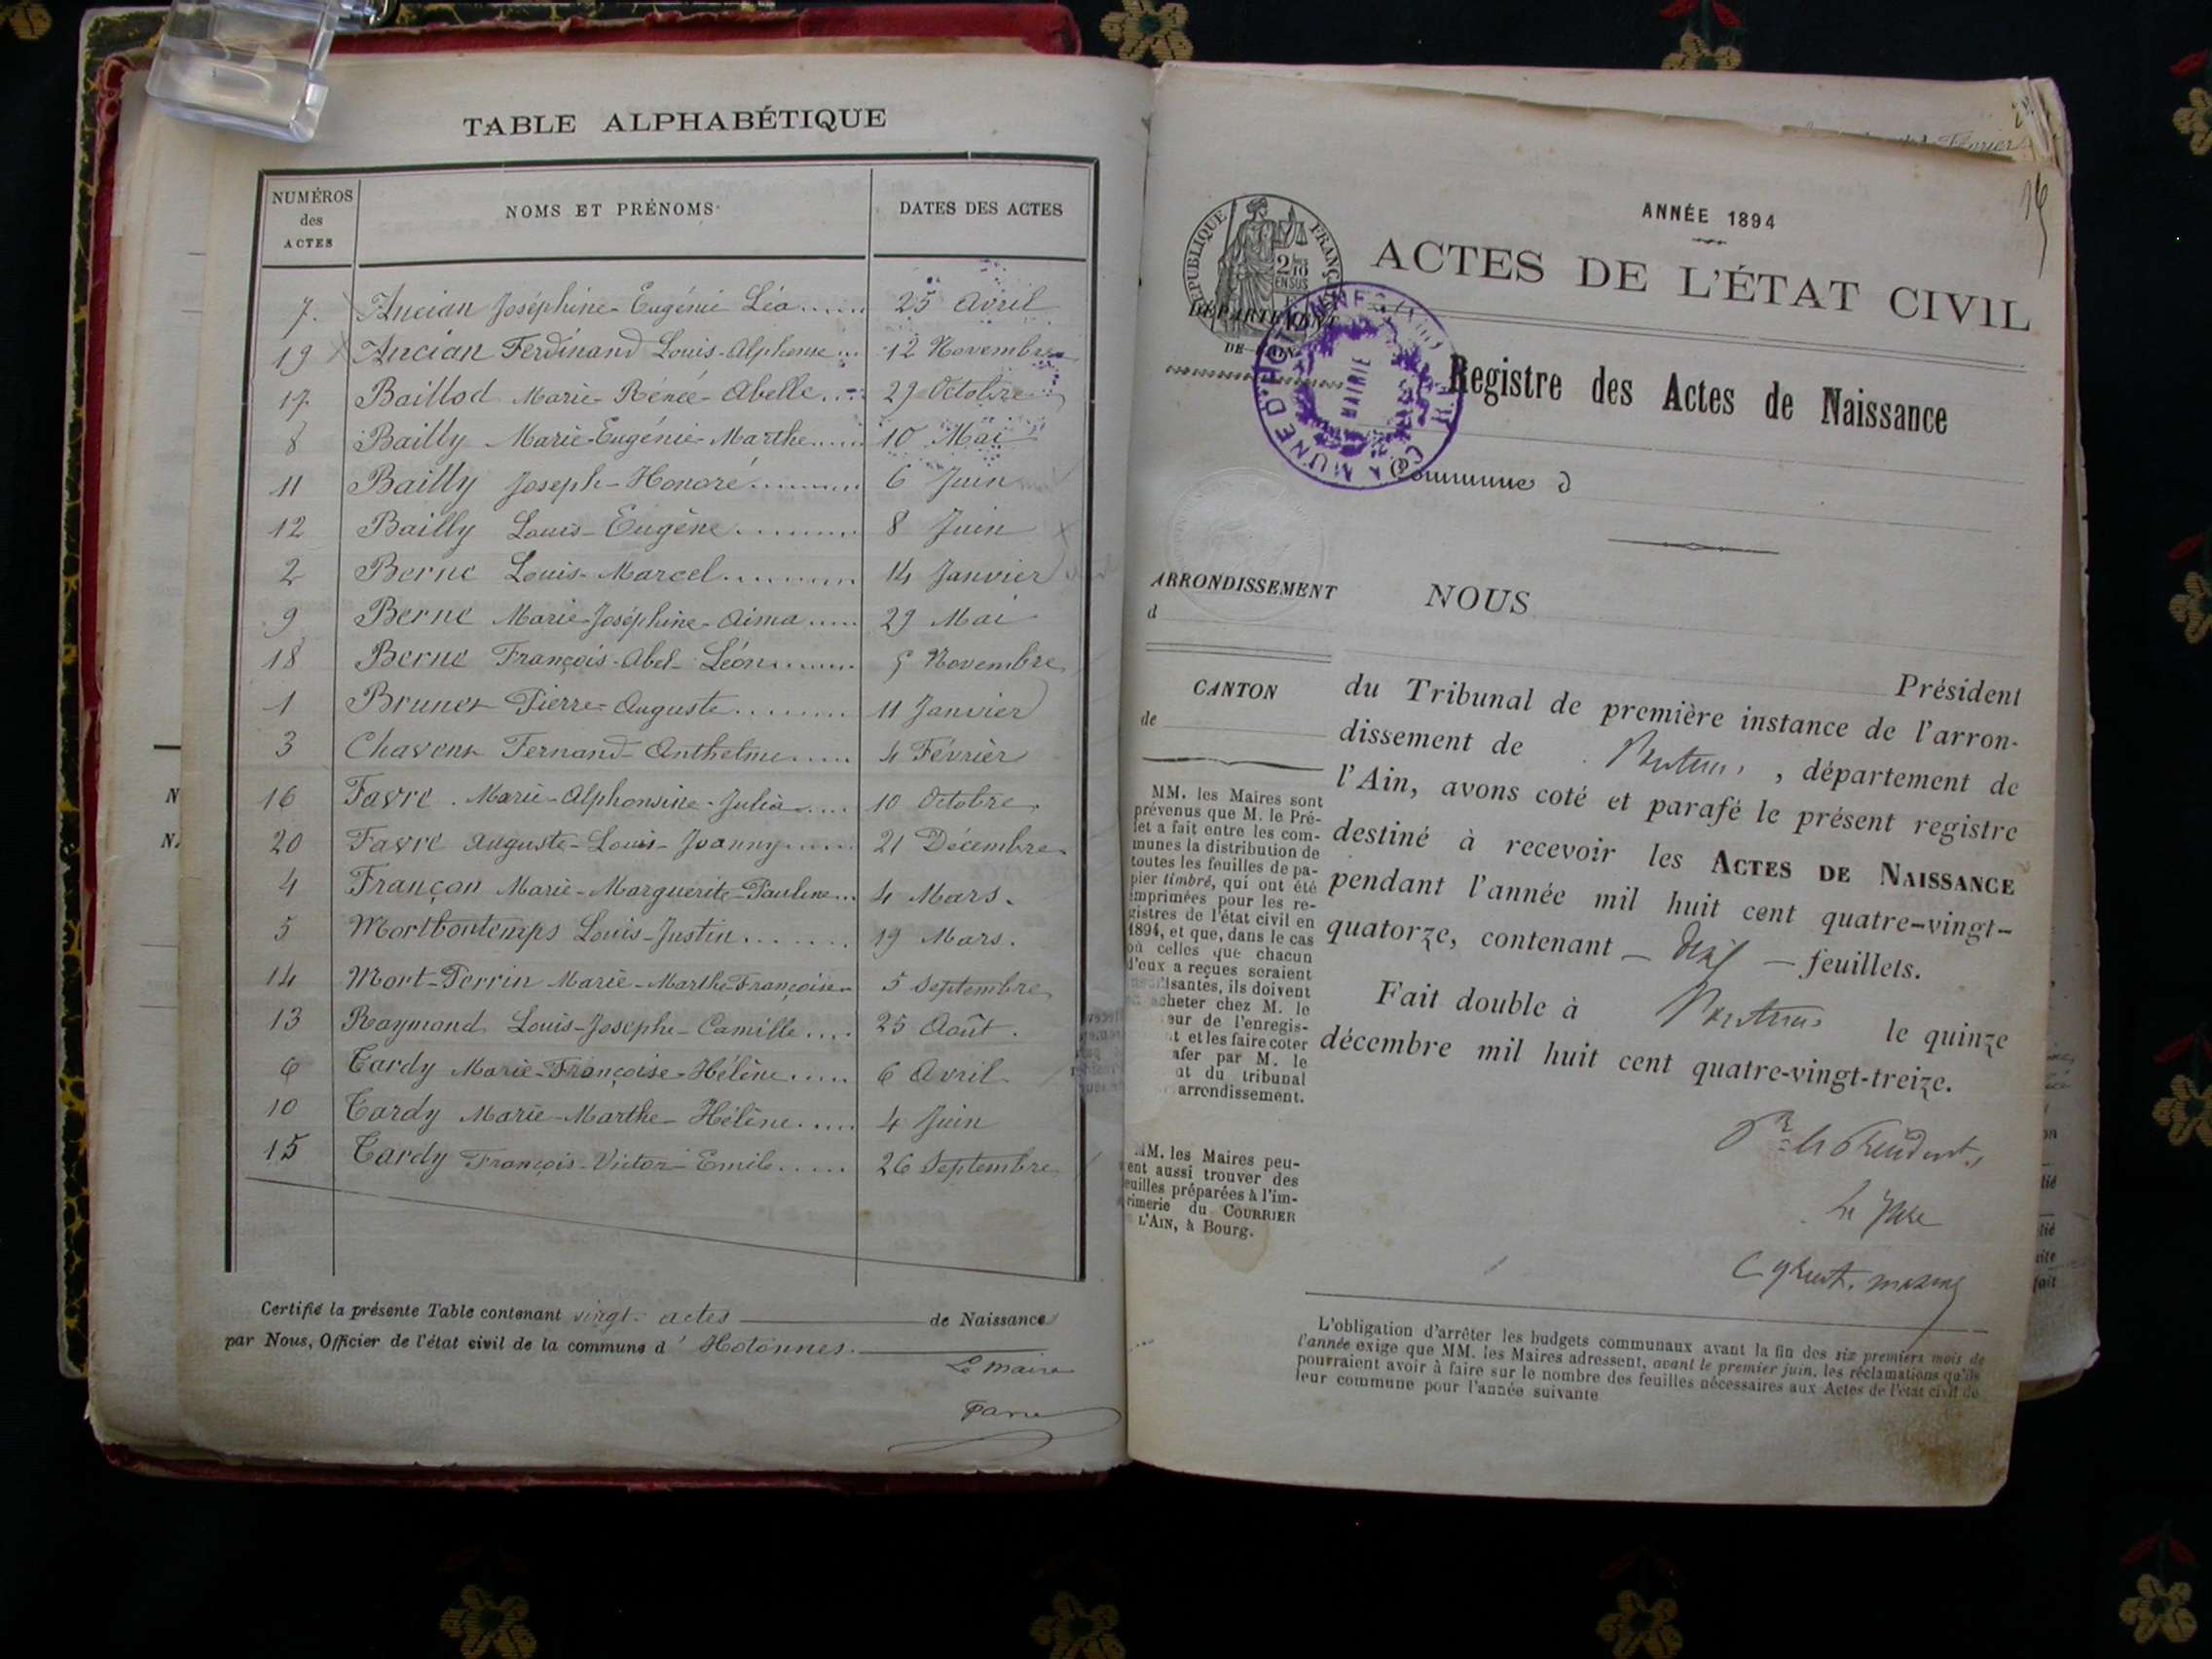 TABLE ALPHABÉTIQUE
NUMÉROS
des
ACTES
NOMS ET PRÉNOMS
DATES DES ACTES
7. Ancian Joséphine-Eugénie Léa 25 Avril
19 Ancian Ferdinand Louis-Alphonse 12 Novembre
17. Baillod Marie-Rénée-Abelle 29 Octobre
8 Bailly Marie-Eugénie-Marthe 10 Mai
11 Bailly Joseph-Honoré 6 Juin
12 Bailly Louis-Eugène 8 Juin
2 Berne Louis-Marcel 14 Janvier
9 Berne Marie-Joséphine-Aima 29 Mai
18 Berne François-Abel-Léon 5 Novembre
1 Brunet Pierre-Auguste 11 Janvier
3 Chavent Fernand-Anthelme 4 Février
16 Favre Marie-Alphonsine-Julia 10 Octobre
20 Favre Auguste-Louis-Joanny 21 Décembre
4 Françon Marie-Marguerite-Pauline 4 Mars.
5 Mortbontemps Louis-Justin 19 Mars.
14 Mort-Perrin Marie-Marthe-Françoise 5 Septembre
13 Raymond Louis-Joseph-Camille 25 Août.
6 Tardy Marie-Françoise-Hélène 6 Avril
10 Tardy Marie-Marthe-Hélène 4 Juin
15 Tardy François-Victor-Emile 26 Septembre
Certifié la présente Table contenant vingt actes de Naissance
par Nous, Officier de l'état civil de la commune d' Hotonnes.
Le Maire
ANNÉE 1894
ACTES DE L'ÉTAT CIVIL
RÉPUBLIQUE FRANÇAISE
2/10 EN SUS
DÉPARTEMENT
DE L'AIN
COMMUNE D'HOTONNES
MAIRIE
Registre des Actes de Naissance
Commune d
ARRONDISSEMENT
d
CANTON
de
MM. les Maires sont
prévenus que M. le Pré-
fet a fait entre les com-
munes la distribution de
toutes les feuilles de pa-
pier timbré, qui ont été
imprimées pour les re-
gistres de l'état civil en
1894, et que, dans le cas
où celles que chacun
d'eux a reçues seraient
isantes, ils doivent
acheter chez M. le
eur de l'enregis-
t et les faire coter
afer par M. le
nt du tribunal
arrondissement.
MM. les Maires peu-
vent aussi trouver des
feuilles préparées à l'im-
primerie du COURRIER
L'AIN, à Bourg.
NOUS
Président
du Tribunal de première instance de l'arron-
dissement de Nantua, département de
l'Ain, avons coté et parafé le présent registre
destiné à recevoir les ACTES DE NAISSANCE
pendant l'année mil huit cent quatre-vingt-
quatorze, contenant — dix — feuillets.
Fait double à Nantua le quinze
décembre mil huit cent quatre-vingt-treize.
Pr le Président,
Le Juge
L'obligation d'arrêter les budgets communaux avant la fin des six premiers mois de
l'année exige que MM. les Maires adressent, avant le premier juin, les réclamations qu'ils
pourraient avoir à faire sur le nombre des feuilles nécessaires aux Actes de l'état civil de
leur commune pour l'année suivante